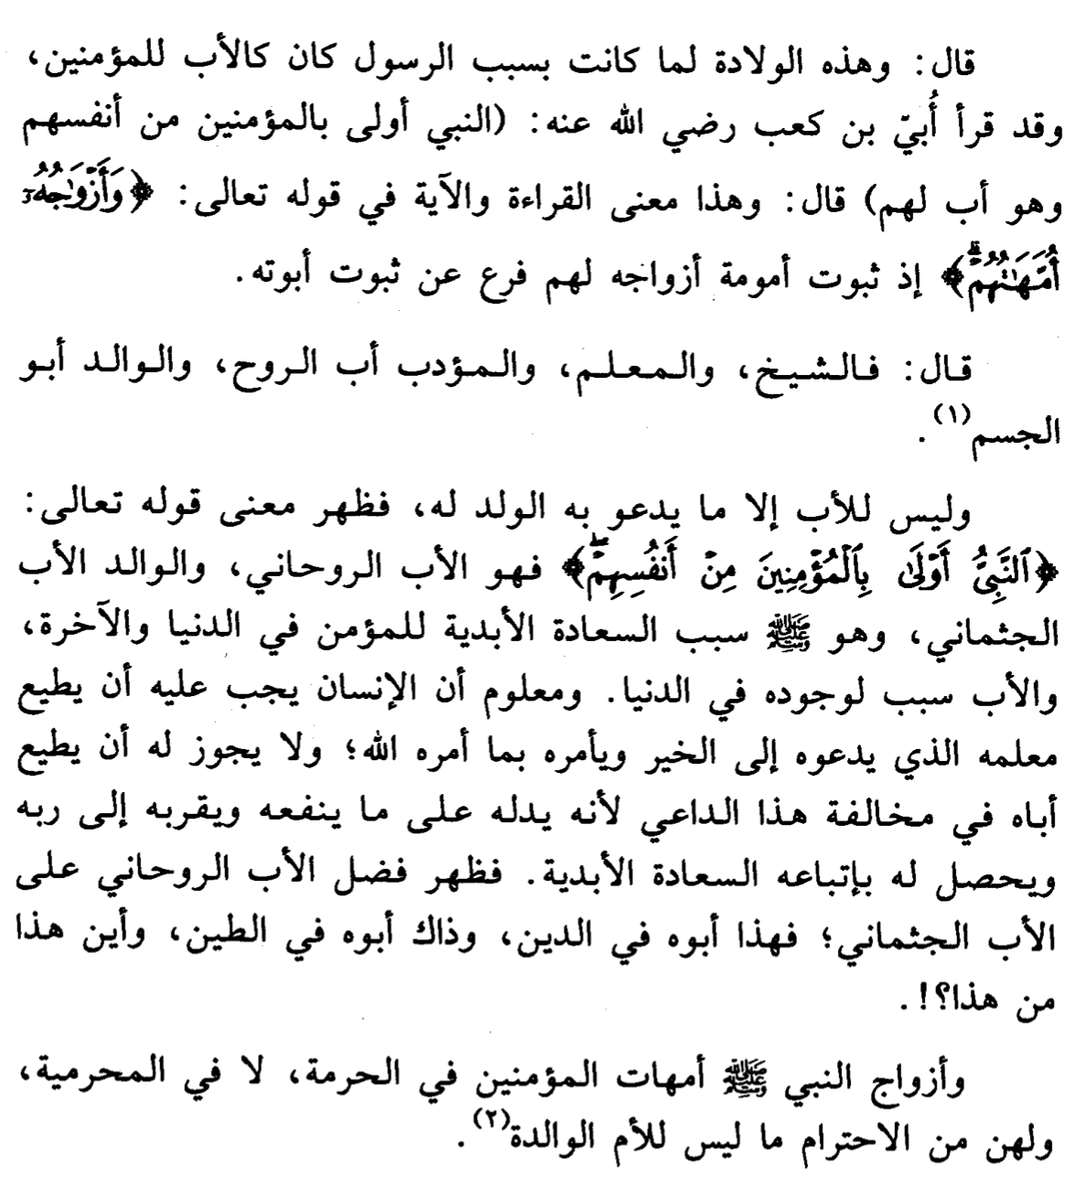 قال: وهذه الولادة لما كانت بسبب الرسول كان كالأب للمؤمنين،
وقد قرأ أُبيّ بن كعب رضي الله عنه: (النبي أولى بالمؤمنين من أنفسهم
وهو أب لهم) قال: وهذا معنى القراءة والآية في قوله تعالى: ﴿وَأَزْوَٰجُهُۥٓ
أُمَّهَٰتُهُمْۗ﴾ إذ ثبوت أمومة أزواجه لهم فرع عن ثبوت أبوته.
قال: فالشيخ، والمعلم، والمؤدب أب الروح، والوالد أبو
الجسم(١).
وليس للأب إلا ما يدعو به الولد له، فظهر معنى قوله تعالى:
﴿ٱلنَّبِيُّ أَوْلَىٰ بِٱلْمُؤْمِنِينَ مِنْ أَنفُسِهِمْۖ﴾ فهو الأب الروحاني، والوالد الأب
الجثماني، وهو ﷺ سبب السعادة الأبدية للمؤمن في الدنيا والآخرة،
والأب سبب لوجوده في الدنيا. ومعلوم أن الإنسان يجب عليه أن يطيع
معلمه الذي يدعوه إلى الخير ويأمره بما أمره الله؛ ولا يجوز له أن يطيع
أباه في مخالفة هذا الداعي لأنه يدله على ما ينفعه ويقربه إلى ربه
ويحصل له بإتباعه السعادة الأبدية. فظهر فضل الأب الروحاني على
الأب الجثماني؛ فهذا أبوه في الدين، وذاك أبوه في الطين، وأين هذا
من هذا؟!.
وأزواج النبي ﷺ أمهات المؤمنين في الحرمة، لا في المحرمية،
ولهن من الاحترام ما ليس للأم الوالدة(٢).